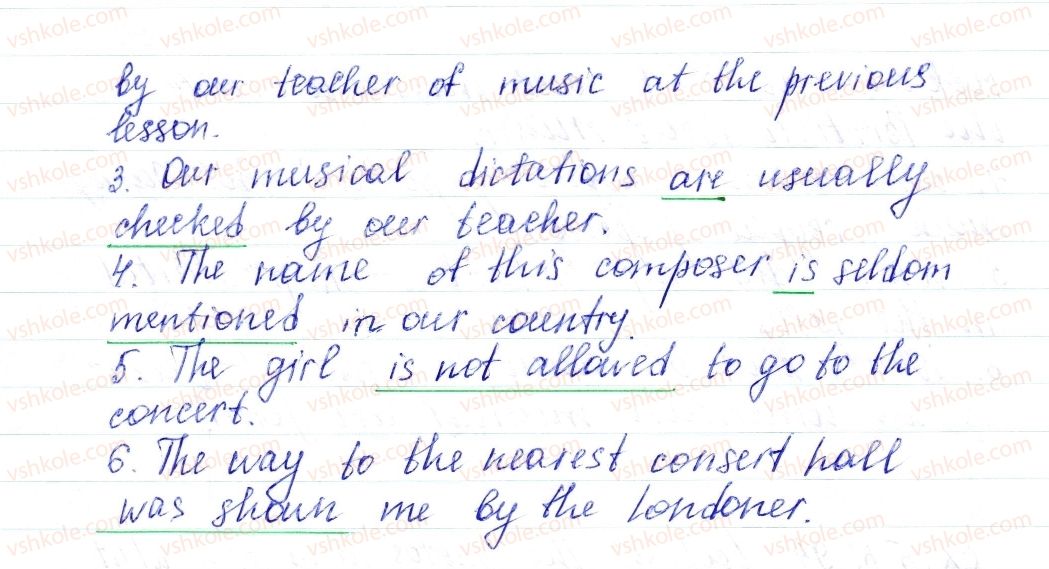 by our teacher of music at the previous
lesson.
3. Our musical dictations are usually
checked by our teacher.
4. The name of this composer is seldom
mentioned in our country.
5. The girl is not allowed to go to the
concert.
6. The way to the nearest consert hall
was shown me by the Londoner.